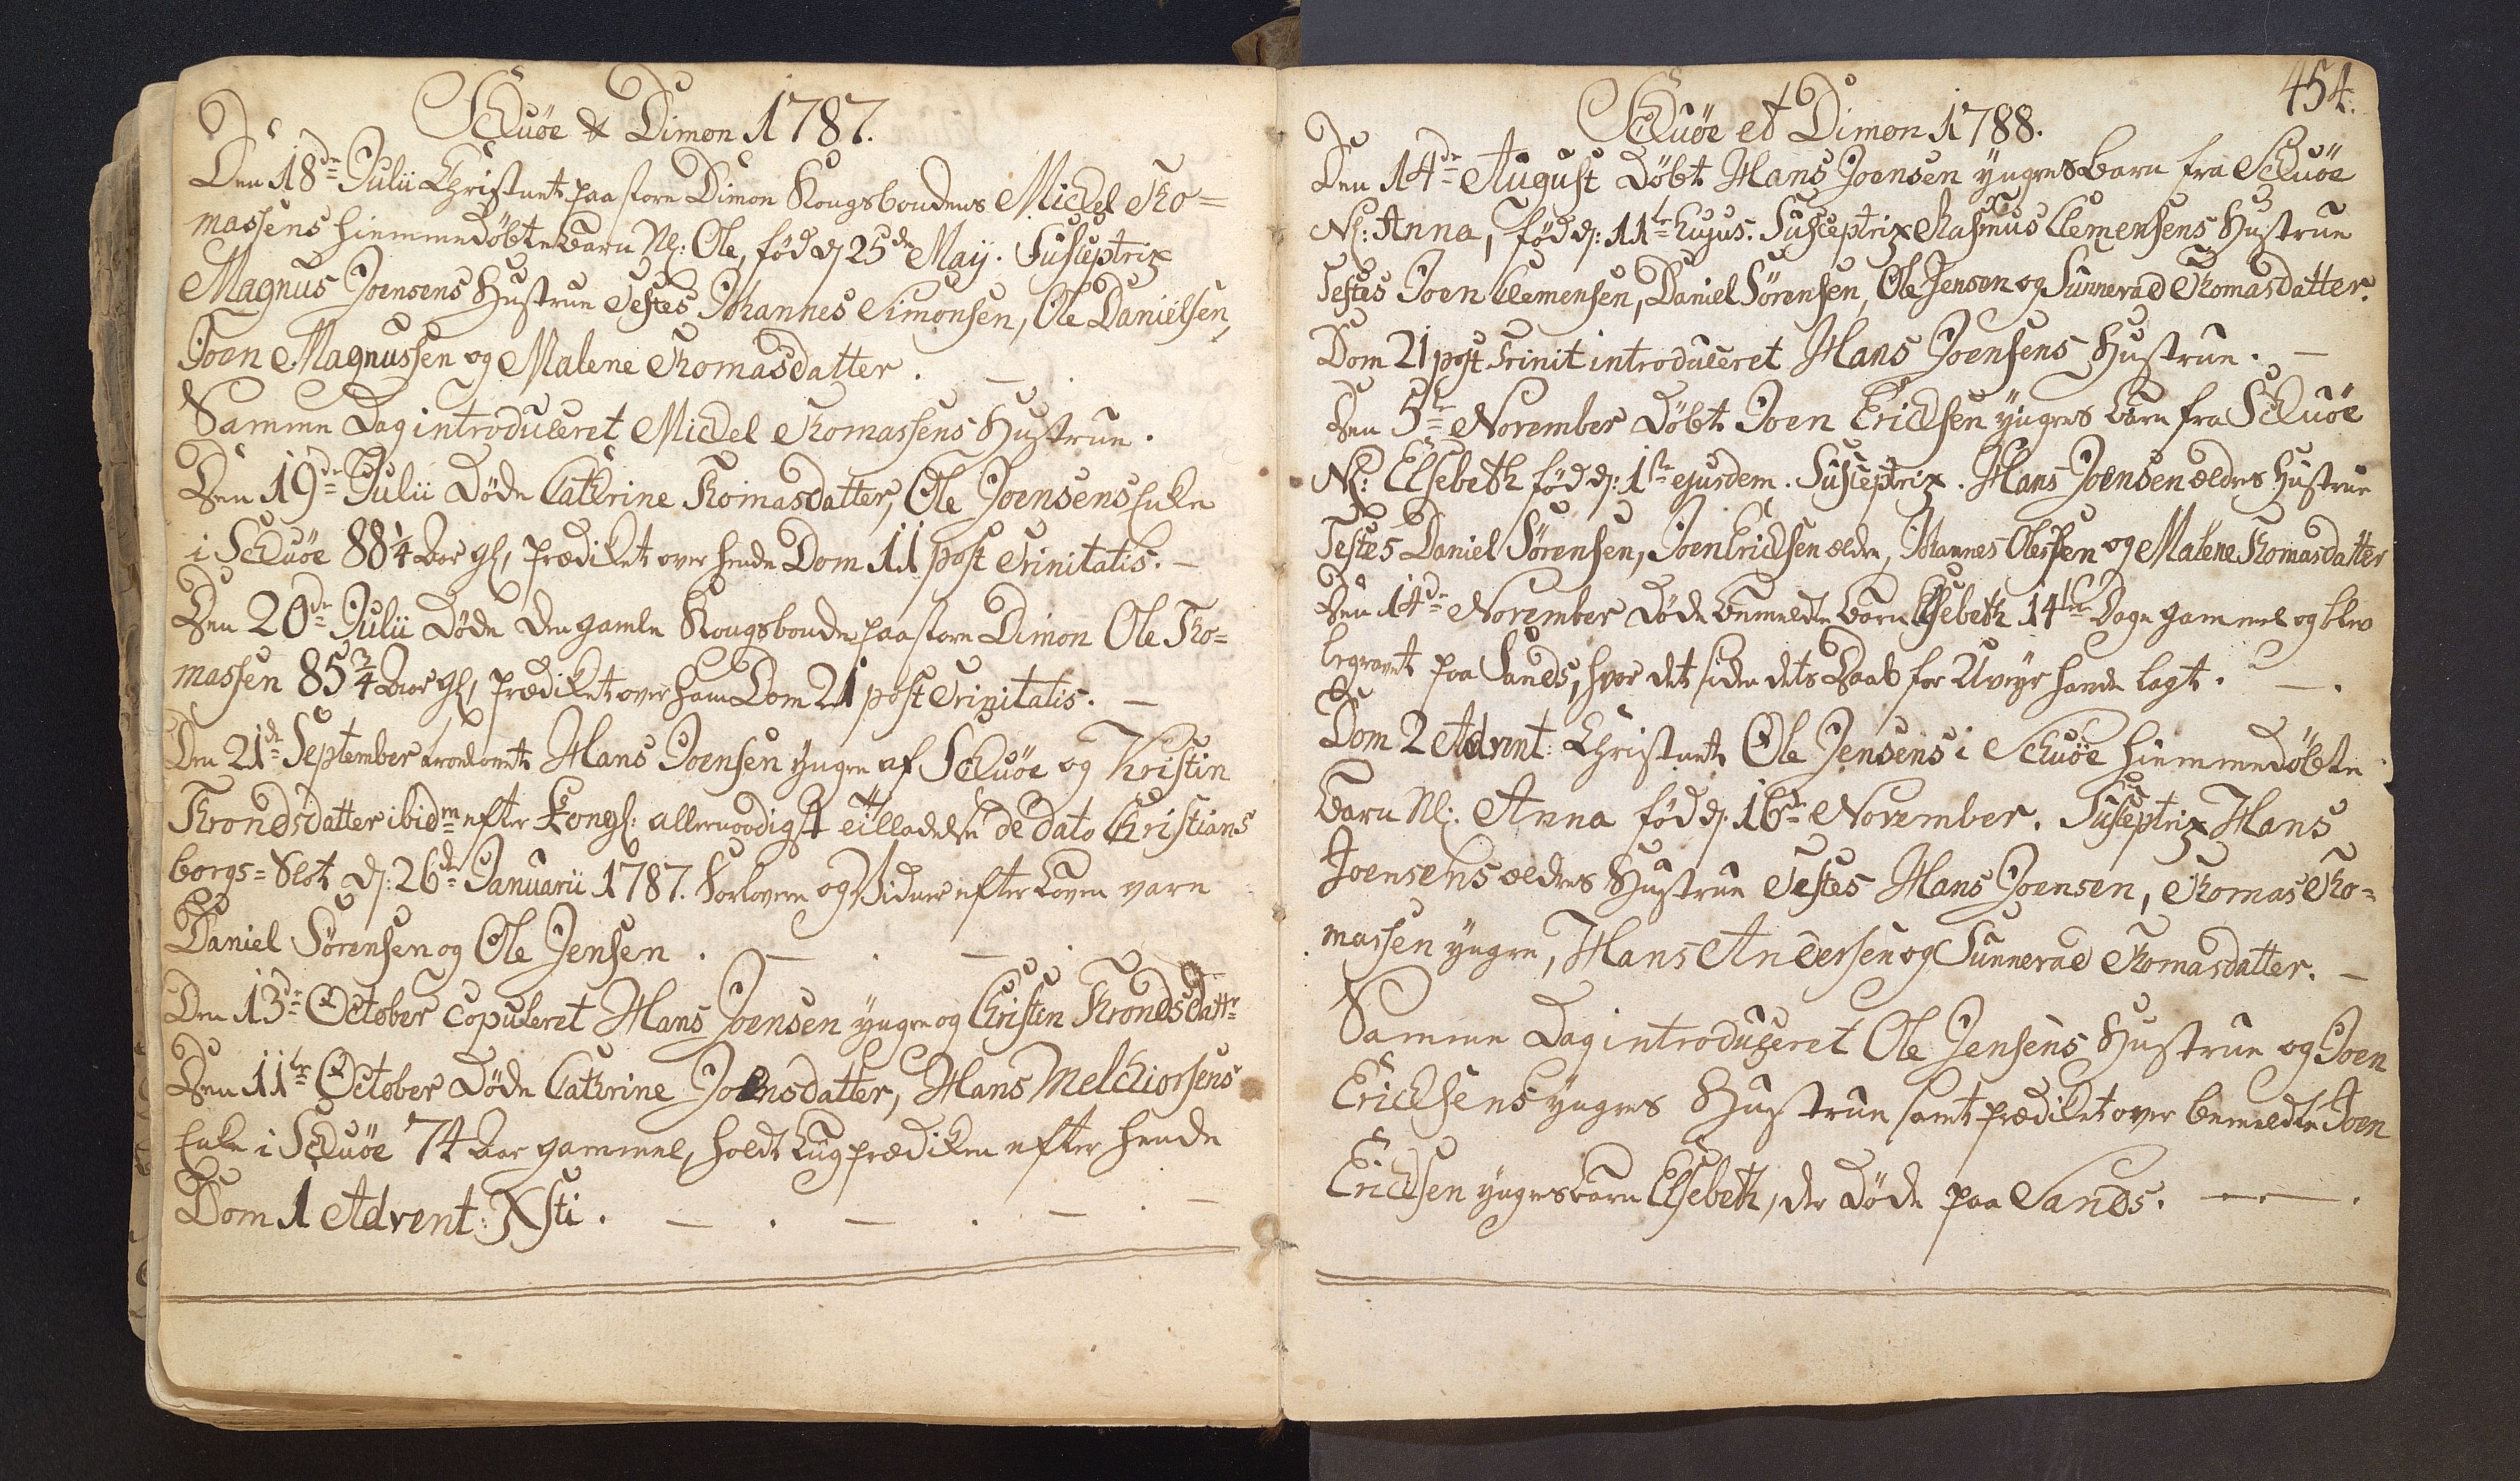 Schuöe & Dimon 1787.
Den 18de Julii Christnet paa store Dimon Kongsbondens Michel Tho=
massens hiemmedøbte Barn Nl: Ole, fød d. 25de Maij. Susceptrix
Magnus Joensens Hustrue Testes Johannes Simonsen, Ole Danielsen,
Joen Magnussen og Malene Thomasdatter.
Samme Dag introduceret Michel Thomassens Hustrue.
Den 19de Julii Døde Cathrine Thomasdatter, Ole Joensens Enke
i Schuöe 88 1/4 Aar gl, prædiket over hende Dom 11 post Trinitatis. –
Den 20de Julii Døde den gamle Kongsbonde paa store Dimon Ole Tho=
massen 85 3/4 Aar gl, prædiket over ham Dom 21 post Trinitatis. –
Den 21de September trolovet Hans Joensen yngre af Schuöe og Kristin
Throndsdatter ibidm efter Kongl: allernaadigst tilladelse de dato Christians
borgs=Slot d: 26de Januarii 1787. Forlovere og Vidner efter Loven vare
Daniel Sørensen og Ole Jensen. –
Den 13de October copuleret Hans Joensen yngre og Christin Throndsdattr
Den 11te October Døde Cathrine Joensdatter, Hans Melchiorsens
Enke i Schuöe 74 Aar gammel, holdt Liigprædiken efter hende
Dom 1 Advent: Xsti. –
454.
Schuöe et Dimon 1788.
Den 14de August Døbt Hans Joensen yngres Barn fra Schuöe
Nl: Anna, fød d: 11te hujus. Susceptrix Rasmus Clemensens Hustrue
Testes Joen Clemensen, Daniel Sørensen, Ole Jensen og Sunneva Thomasdatter.
Dom 21 post Trinit introduceret Hans Joensens Hustrue. –
Den 5te November Døbt Joen Erichsen yngres Barn fra Schuöe
Nl: Elsebeth fød d: 1ste ejusdem. Susceptrix. Hans Joensen ældres Hustrue
Testes Daniel Sørensen, Joen Erichsen ældre, Johannes Olessen og Malene Thomasdatter
Den 14de November Døde bemeldte Barn Elsebeth 14ten Dage gammel og blev
begravet paa Sands, hvor det siden dets Daab for Uveyr havde lagt. –
Dom 2 Advent: Christnet Ole Jensens i Schuöe hiemmedøbte
Barn Nl: Anna fød d. 16de November. Susceptrix Hans
Joensens ældres Hustrue Testes Hans Joensen, Thomas Tho=
massen yngre, Hans Andersen og Sunneva Thomasdatter. –
Samme Dag introduceret Ole Jensens Hustrue og Joen
Erichsens yngres Hustrue samt prædiket over bemeldte Joen
Erichsen yngres Barn Elsebeth, der Døde paa Sands. –